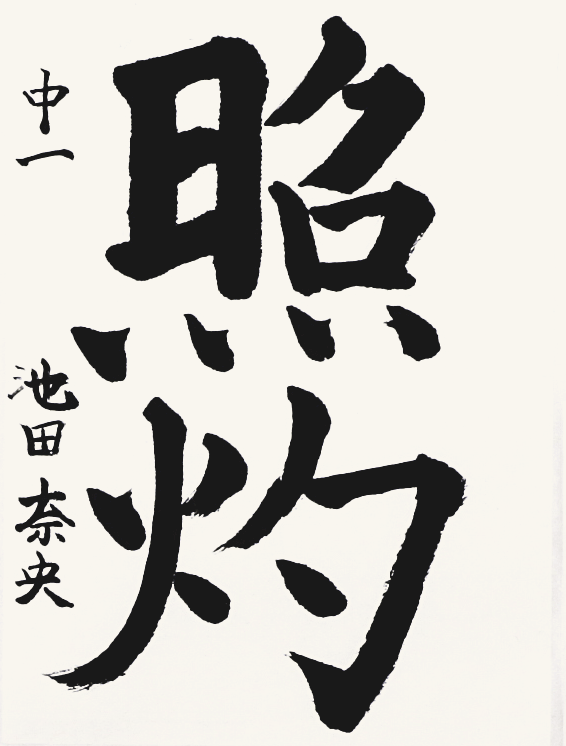 照灼
中一 池田奈央